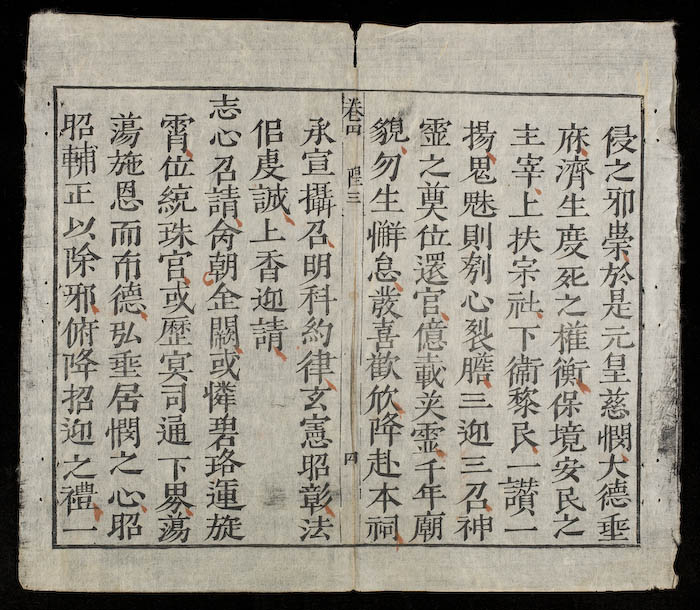 侵之邪祟於是元皇慈憫大德垂
庥濟生度死之權衡保境安民之
主宰上扶宗社下衞黎民一讃一
揚鬼魅則刳心裂膽三迎三召神
靈之奠位還官億載英靈千年廟
貌勿生懈怠發喜歡欣降赴本祠
卷四 陞三 四
承宣攝召明科約律玄憲昭彰法
侣虔誠上香迎請
志心召請朝金闕或憐碧珞運旋
霄位統珠官或歷冥司通下界蕩
蕩施恩而布德弘垂居憫之心昭
昭輔正以除邪俯降招迎之禮一